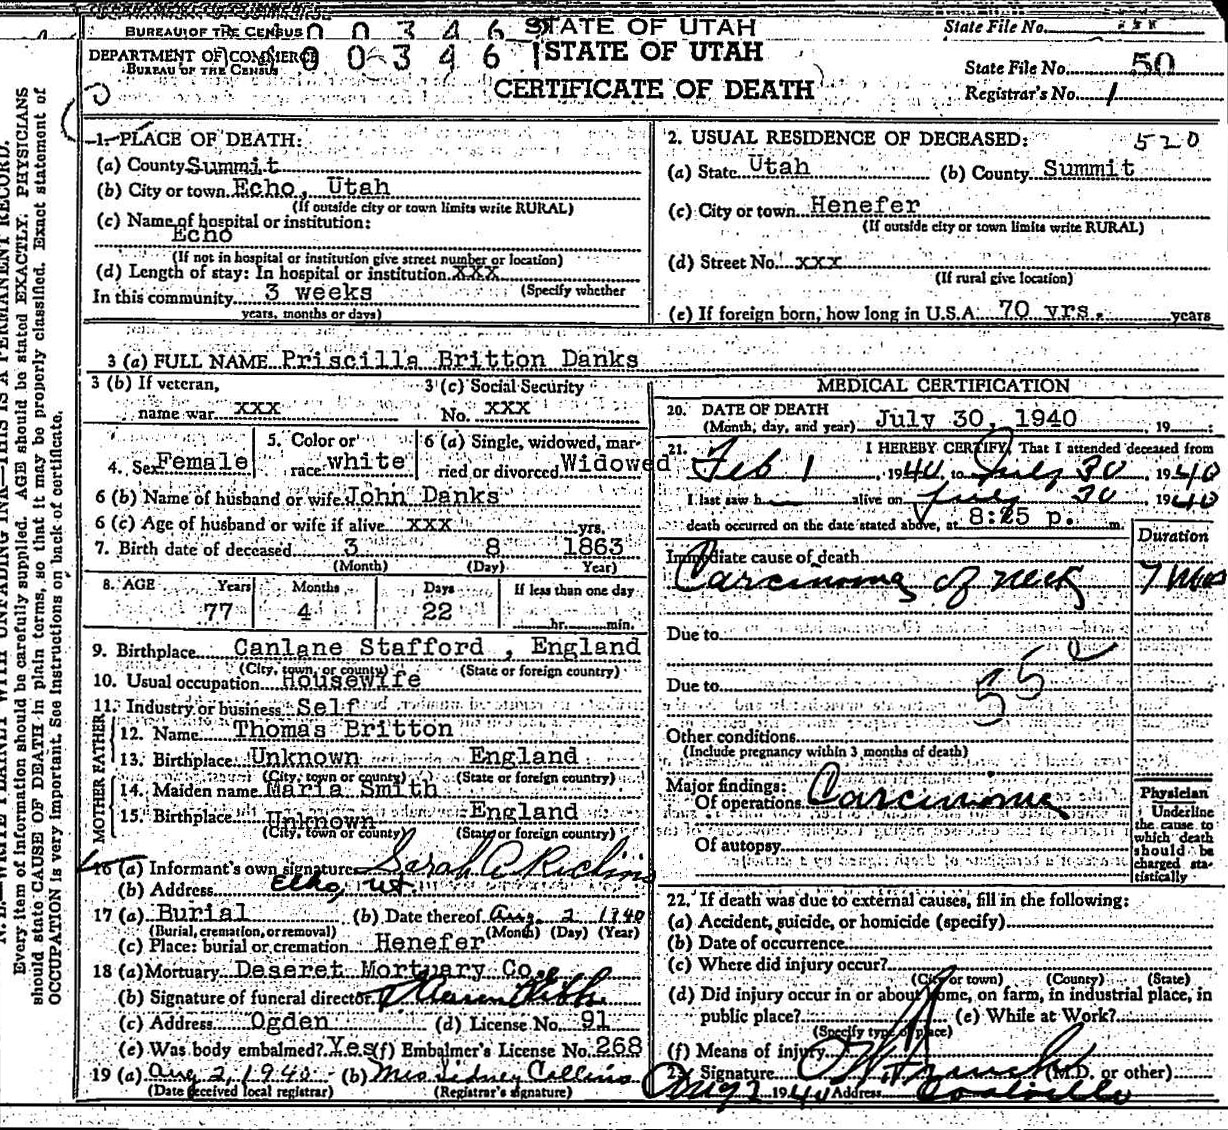 BUREAU OF THE CENSUS 0 0 3 4 6 STATE OF UTAH State File No.
DEPARTMENT OF COMMERCE 0 0 3 4 6 STATE OF UTAH
BUREAU OF THE CENSUS State File No. 50
CERTIFICATE OF DEATH Registrar's No. 1
1. PLACE OF DEATH:
(a) County Summit
(b) City or town Echo, Utah
(If outside city or town limits write RURAL)
(c) Name of hospital or institution:
Echo
(If not in hospital or institution give street number or location)
(d) Length of stay: In hospital or institution xxx
In this community 3 weeks (Specify whether
years, months or days)
2. USUAL RESIDENCE OF DECEASED: 520
(a) State Utah (b) County Summit
(c) City or town Henefer
(If outside city or town limits write RURAL)
(d) Street No. xxx
(If rural give location)
(e) If foreign born, how long in U.S.A. 70 yrs. years
3 (a) FULL NAME Priscilla Britton Danks
3 (b) If veteran, 3 (c) Social Security
name war xxx No. xxx
4. Sex Female 5. Color or race white 6 (a) Single, widowed, married or divorced Widowed
6 (b) Name of husband or wife John Danks
6 (c) Age of husband or wife if alive xxx yrs.
7. Birth date of deceased 3 8 1863
(Month) (Day) Year)
8. AGE Years Months Days If less than one day
77 4 22 hr. min.
9. Birthplace Canlane Stafford , England
(City, town, or county) (State or foreign country)
10. Usual occupation Housewife
11. Industry or business Self
FATHER
12. Name Thomas Britton
13. Birthplace Unknown England
(City, town or county) (State or foreign country)
MOTHER
14. Maiden name Maria Smith
15. Birthplace Unknown England
(City, town or county) (State or foreign country)
16 (a) Informant's own signature Sarah A Richins
(b) Address Echo, Ut
17 (a) Burial (b) Date thereof Aug. 2 1940
(Burial, cremation, or removal) (Month) (Day) (Year)
(c) Place: burial or cremation Henefer
18 (a) Mortuary Deseret Mortuary Co.
(b) Signature of funeral director
(c) Address Ogden (d) License No. 91
(e) Was body embalmed? Yes (f) Embalmer's License No. 268
19 (a) Aug 2, 1940 (b) Mrs Sidney Collins
(Date received local registrar) (Registrar's signature)
MEDICAL CERTIFICATION
20. DATE OF DEATH
(Month, day, and year) July 30, 1940 19
21. I HEREBY CERTIFY, That I attended deceased from
Feb 1 1940, to July 30 1940
I last saw h alive on July 30 1940
death occurred on the date stated above, at 8:25 p. m.
Duration
Immediate cause of death
Carcinoma of neck 7 Mos
Due to
Due to 55
Other conditions
(Include pregnancy within 3 months of death)
Major findings:
Of operations Carcinoma
Of autopsy
Physician
Underline
the cause to
which death
should be
charged sta-
tistically
22. If death was due to external causes, fill in the following:
(a) Accident, suicide, or homicide (specify)
(b) Date of occurrence
(c) Where did injury occur?
(City or town) (County) (State)
(d) Did injury occur in or about home, on farm, in industrial place, in
public place? (e) While at Work?
(Specify type of place)
(f) Means of injury
23. Signature (M.D. or other)
Aug 2 1940 Address Coalville
N. B.—WRITE PLAINLY WITH UNFADING INK—THIS IS A PERMANENT RECORD.
Every item of information should be carefully supplied. AGE should be stated EXACTLY. PHYSICIANS
should state CAUSE OF DEATH in plain terms, so that it may be properly classified. Exact statement of
OCCUPATION is very important. See Instructions on back of certificate.